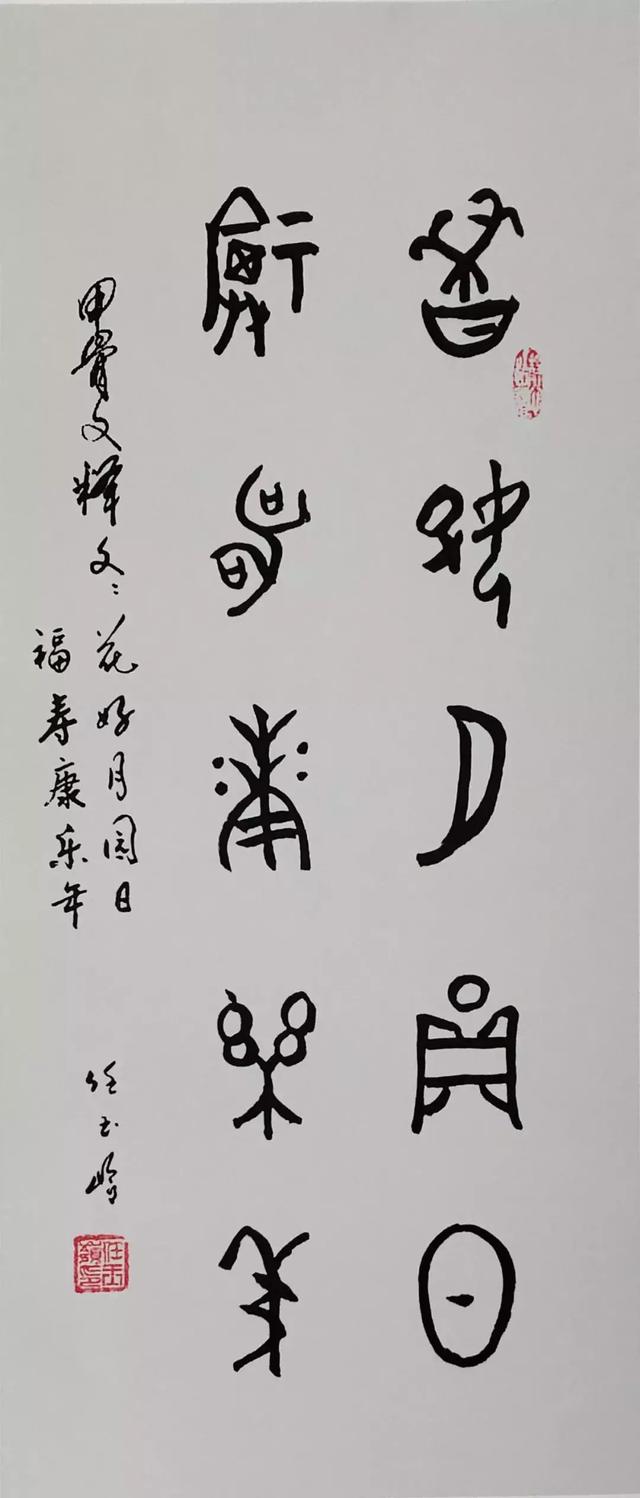 花好月圆日
福寿康乐年
甲骨文释文:花好月圆日
福寿康乐年
任玉岭
任玉嶺印